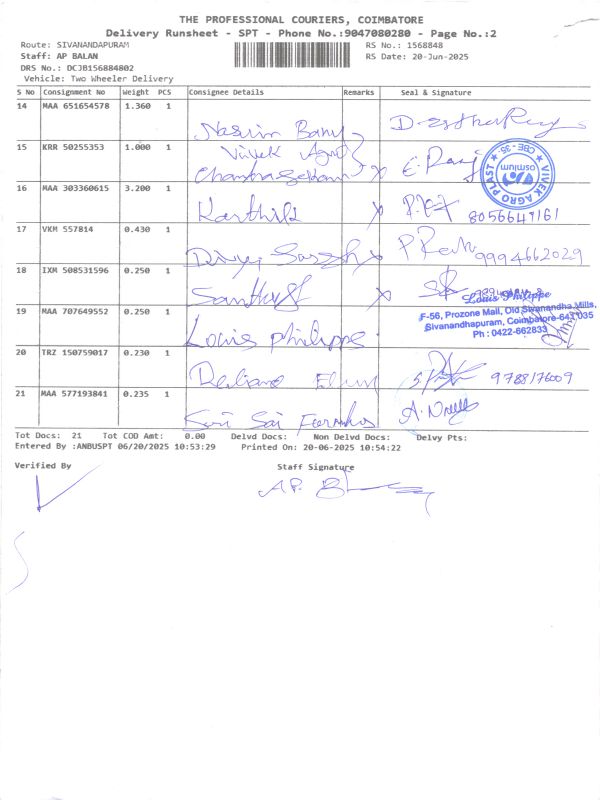 THE PROFESSIONAL COURIERS, COIMBATORE
Delivery Runsheet - SPT - Phone No.:9047080280 - Page No.:2
Route: SIVANANDAPURAM RS No.: 1568848
Staff: AP BALAN RS Date: 20-Jun-2025
DRS No.: DCJB156884802
Vehicle: Two Wheeler Delivery
S No Consignment No Weight PCS Consignee Details Remarks Seal & Signature
14 MAA 651654578 1.360 1
Nasrin Banu
15 KRR 50255353 1.000 1
Vivek Agro
Chandrasekaran E. Raj
VIVEK AGRO PLAST CBE-35 osmium
16 MAA 303360615 3.200 1
Karthik 8056649161
17 VKM 557814 0.430 1
9994662029
18 IXM 508531596 0.250 1
Santhosh
Louis Philippe
19 MAA 707649552 0.250 1
F-56, Prozone Mall, Old Sivanandha Mills,
Sivanandhapuram, Coimbatore-641 035
Ph : 0422-662833
Louis Philippe
20 TRZ 150759017 0.230 1
9788176009
21 MAA 577193841 0.235 1
Sri Sai
Tot Docs: 21 Tot COD Amt: 0.00 Delvd Docs: Non Delvd Docs: Delvy Pts:
Entered By :ANBUSPT 06/20/2025 10:53:29 Printed On: 20-06-2025 10:54:22
Verified By Staff Signature
AP.